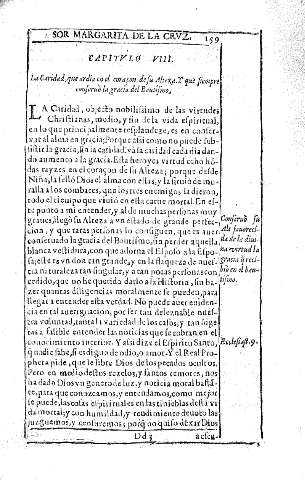 SOR MARGARITA DE LA CRVZ. 159
CAPITVLO VIII.
La Caridad, que ardia en el coraçon de su Alteza. Y que siempre
conseruò la gracia del Bautismo.
LA Caridad, objecto nobilissimo de las virtudes
Christianas, medio, y fin de la vida espiritual,
en lo que principalmente resplandeze, es en conser-
var al alma en gracia; Porque assi como no puede sub-
sistir la gracia, sin la caridad, và la caridad cada dia dan-
do aumento a la gracia. Esta heroyca virtud echò hõ-
das rayzes en el coraçon de su Alteza; porque desde
Niña, la sellò Dios el alma con ella, y la siruiò de mu-
ralla a los combates, que los tres enemigos, la dieron,
todo el tiempo que viuiò en esta carne mortal. En es-
te punto a mi entender, y al de muchas personas muy
graues, llegò su Alteza a vn estado de grande perfec-
cion, y que raras personas lo consiguen, que es auer
conseruado la gracia del Boutismo, sin perder aquella
blanca vestidura, con que adorna el Esposo a la Espo-
sa; este es vn don tan grande, y en la flaqueza de nues-
tra naturaleza tan singular, y a tan pocas personas con-
cedido, que no he querido darlo a la Historia, sin ha-
zer quantas diligencias moralmente se pueden, para
llegar a entender esta verdad. No puede auer euiden-
cia en tal aueriguacion, por ser tan deleznable nues-
tra voluntad, tanta la variedad de los casos, y tan suge-
tas a falible entender las noticias que se cobran en el
conocimiento interior. Y assi dize el Espiritu Santo,
q̃ nadie sabe, si es digno de odio, o amor. Y el Real Pro-
pheta pide, que le libre Dios de los pecados ocultos.
Pero en medio destos rezelos, y santos temores, nos
ha dado Dios vn genero de luz, y noticia moral bastã-
te, para que conozcamos, y entendamos, como mejor
se puede, las cosas espirituales en las tinieblas desta vi-
da mortal; y con humildad, y rendimiento deuoto las
juzguemos, y confessemos; porq̃ no quiso dexar Dios
Conseruò su
Alt.
de la
virtud la
gracia q̃ reci-
biò en el bau-
tismo.
Ecclesiast. 9.
Dd 3